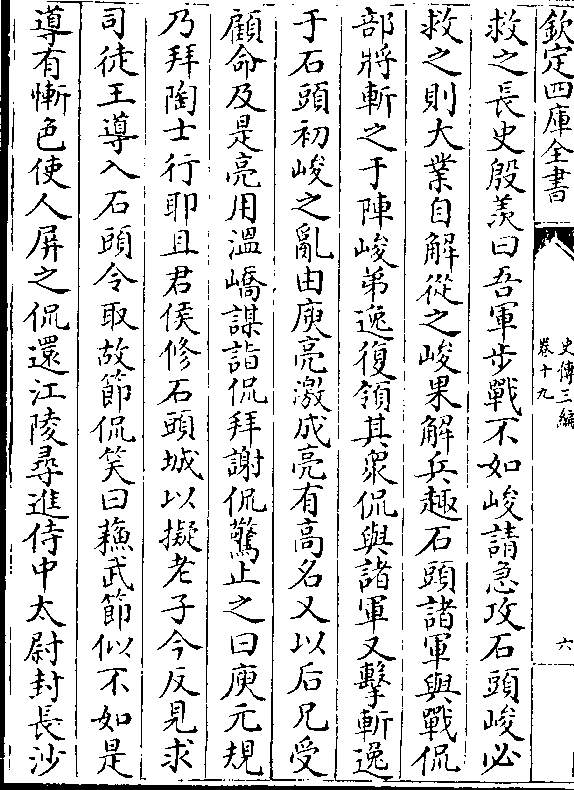 欽定四庫全書
史傳三編
卷十九
六
救之長史殷羡曰吾軍步戰不如峻請急攻石頭峻必
救之則大業自解從之峻果解兵趣石頭諸軍與戰侃
部將斬之于陣峻弟逸復領其衆侃與諸軍又擊斬逸
于石頭初峻之亂由庾亮激成亮有高名又以后兄受
顧命及是亮用溫嶠謀詣侃拜謝侃驚止之曰庾元規
乃拜陶士行耶且君侯修石頭城以擬老子今反見求
司徒王導入石頭令取故節侃笑曰蘓武節似不如是
導有慚色使人屏之侃還江陵尋進侍中太尉封長沙